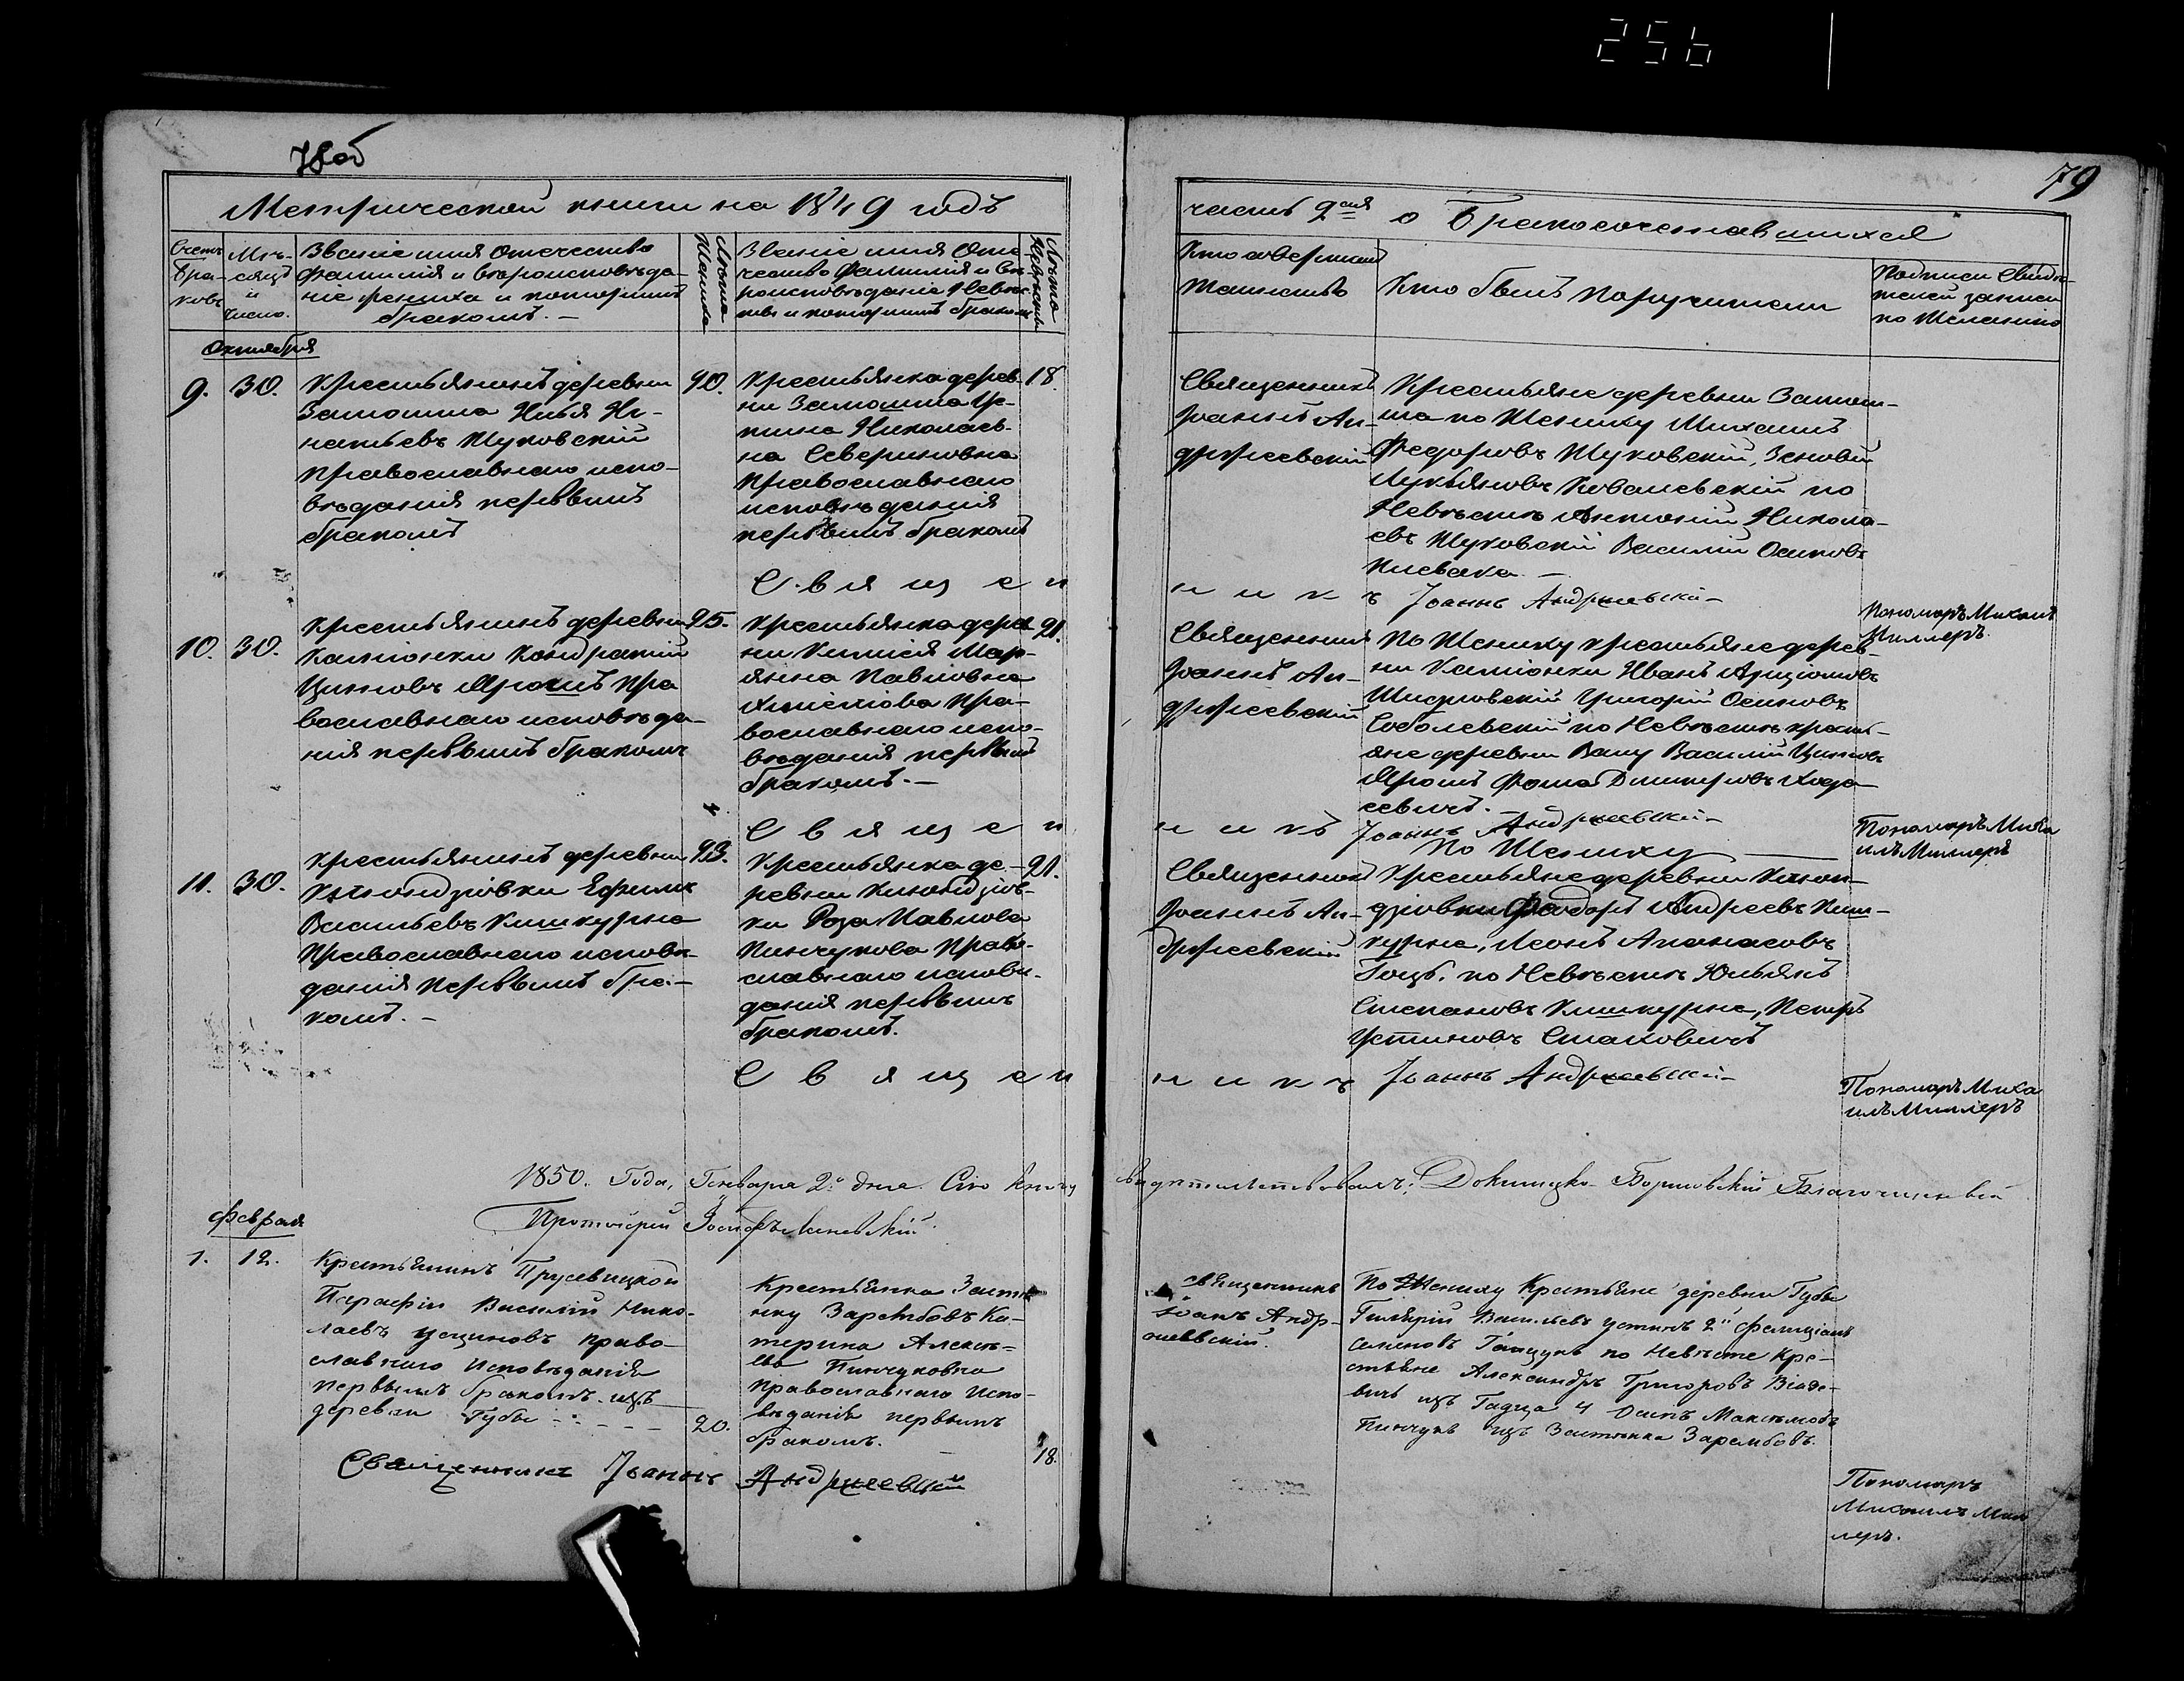 256
78об
79
Метрической книги на 1849 годъ
часть 2ая о Бракосочетавшихся
Счетъ бра- ковъ
Мѣ- сяцъ и число.
Званіе имя Отечество
фамилія и вѣроисповѣда-
ніе жениха и которымъ
бракомъ. —
Лѣта Жениха
Званіе имя Оте-
чество Фамилія и Вѣ-
роисповѣданіе Невѣс-
ты и которымъ бракомъ
Лѣта Невѣсты
Кто совершалъ
Таинство
Кто былъ Поручители
Подписи Свидѣ-
телей записи
по Желанію
Октября
9. 30.
Крестьянинъ деревни
Замошья Илья Иг-
натьевъ Жуковскій
Православнаго испо-
вѣданія первымъ
бракомъ
40.
Крестьянка дерев-
ни Замошья
Николаев-
на Севериновна
Православнаго
исповѣданія
первымъ бракомъ
18.
Священникъ
Іоаннъ Ан-
држеевскій
Крестьяне деревни Замош-
ья по Жениху Михаилъ
Федоровъ Жуковскій, Зеновій
Лукьяновъ Ковалевскій по
Невѣстѣ Антоній Никола-
евъ Жуковскій Василій Осиповъ
С в я щ е н
н и к ъ Іоаннъ Андржеевскій
Пономаръ Михаилъ
Миллеръ.
10. 30.
Крестьянинъ деревни
Каміонки Кондратій
Православнаго исповѣда-
нія первымъ бракомъ
25.
Крестьянка дерев
ни Мар-
янна Павловна
Пра-
вославнаго испо-
вѣданія первымъ
бракомъ. —
21.
Священникъ
Іоаннъ Ан-
држеевскій
По Жениху крестьяне дерев-
ни Каміонки Иванъ
Григорій Осиповъ
Соболевскій по Невѣстѣ кресть-
яне деревни Василій
Фома Дмитровъ Хода-
севичъ.
С в я щ е н
н и к ъ Іоаннъ Андржеевскій
Пономаръ Миха
илъ Миллеръ
11. 30.
Крестьянинъ деревни
Ефимъ
Васильевъ Кишкурна
Православнаго исповѣ-
данія Первымъ бра-
комъ. —
23.
Крестьянка де-
ревни
ки Роза Павлова
Пинчукова Право-
славнаго исповѣ-
данія первымъ
бракомъ.
21.
По Жениху
Священникъ
Іоаннъ Ан-
држеевскій
Крестьяне деревни
Андреевъ Киш-
курна, Леонъ Апанасовъ
Гоцъ. по Невѣстѣ Юльянъ
Степановъ Кишкурна, Петръ
Устиновъ Стаховичъ
С в я щ е н
н и к ъ Іоаннъ Андржеевскій
Пономаръ Миха
илъ Миллеръ
1850. Года, Генваря 2го дня. Сію книгу свидѣтельствовалъ: Докшицко-Борисовскій Благочинный
Протоіерей Іосифъ
Февраля
1. 12.
Крестьянинъ Прусевицкой
Парафіи Василій Нико-
лаевъ Устиновъ право-
славнаго Исповѣданія
первымъ бракомъ. изъ
деревни Губы - - - - 20.
Крестьянка Застѣ
нку Зарембовъ Ка-
терина Алексѣ-
ева Пинчуковна
Православнаго Испо-
вѣданія первымъ
бракомъ. 18.
Священникъ
Іоанъ Андр-
жеевскій.
По Жениху Крестьяне деревни Губы
Васильевъ Устинъ 2й
по Невѣсте Кре-
стьяне Александръ Григоровъ
Пинчукъ изъ Застѣнка Зарембовъ.
Священникъ Іоаннъ Андржеевскій
Пономаръ
Михаилъ Мил
леръ.